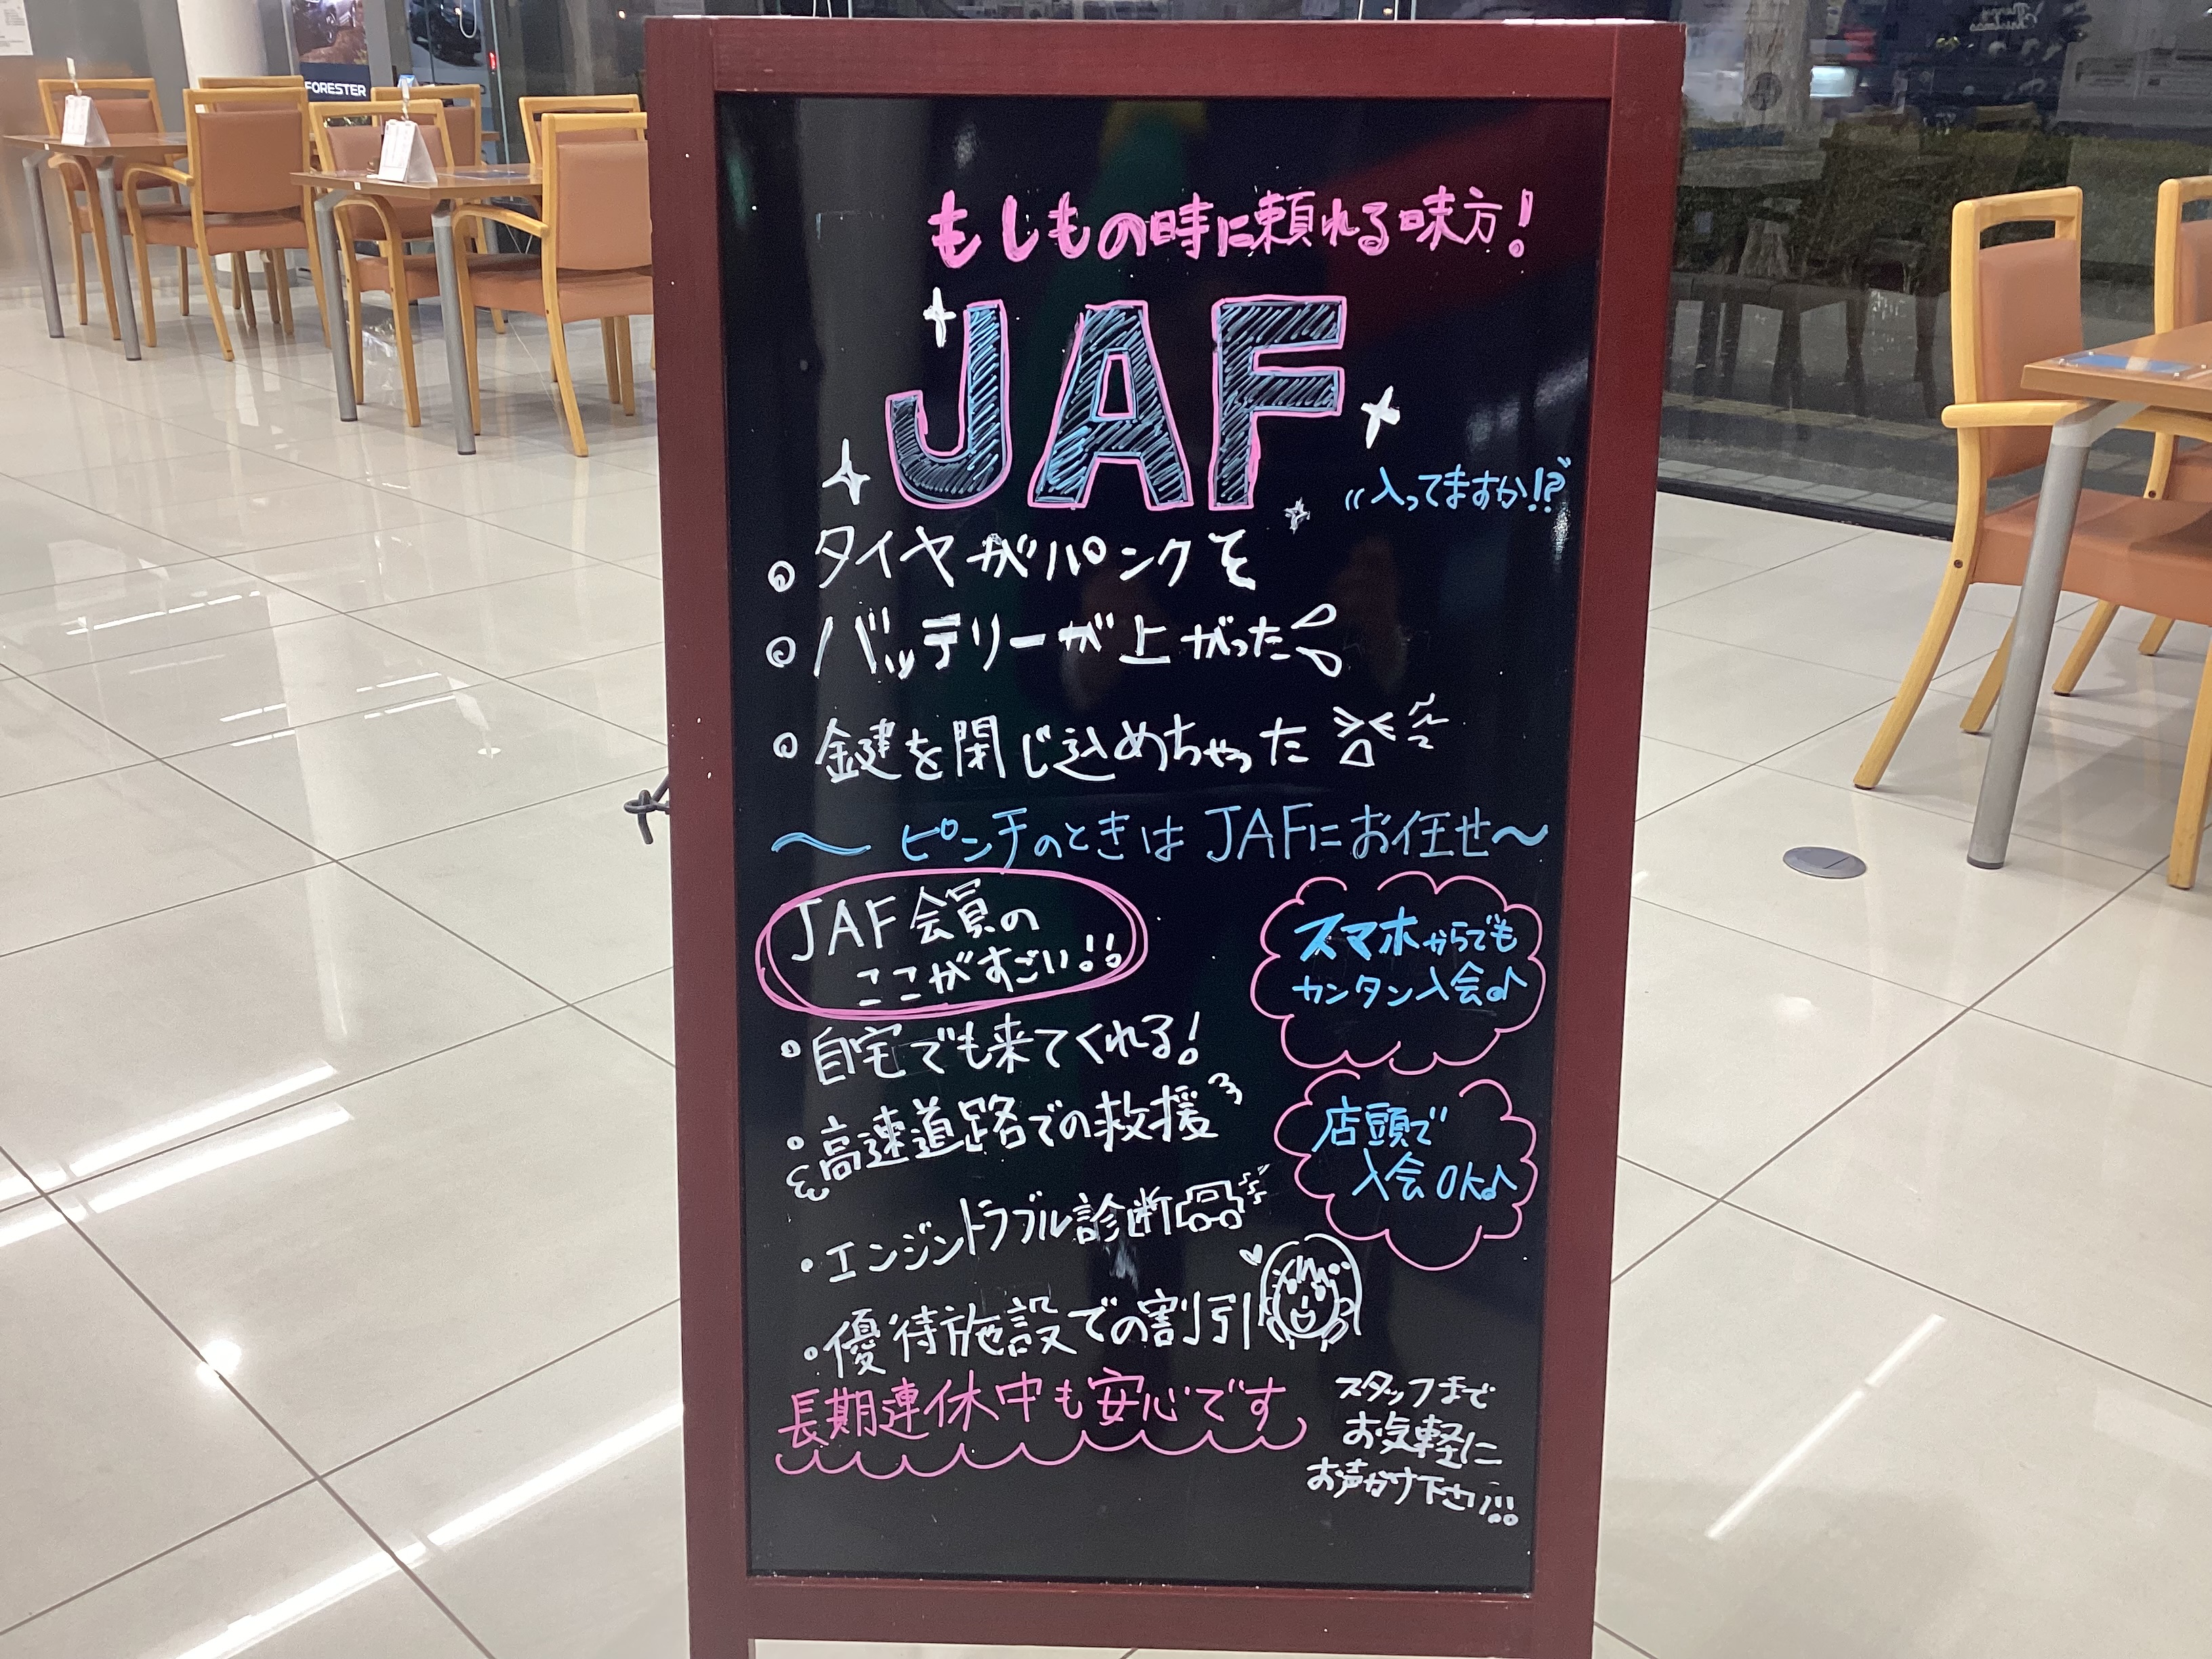 FORESTER
もしもの時に頼れる味方!
JAF
入ってますか!?
タイヤがパンクそ
バッテリーが上がった
鍵を閉じ込めちゃった
〜ピンチのときはJAFにお任せ〜
JAF会員の
ここがすごい!!
スマホからでも
カンタン入会♪
・自宅でも来てくれる!
・高速道路での救援
店頭で
入会OK♪
・エンジントラブル診断
・優待施設での割引
長期連休中も安心です
スタッフまで
お気軽に
お声がけ下さい!!